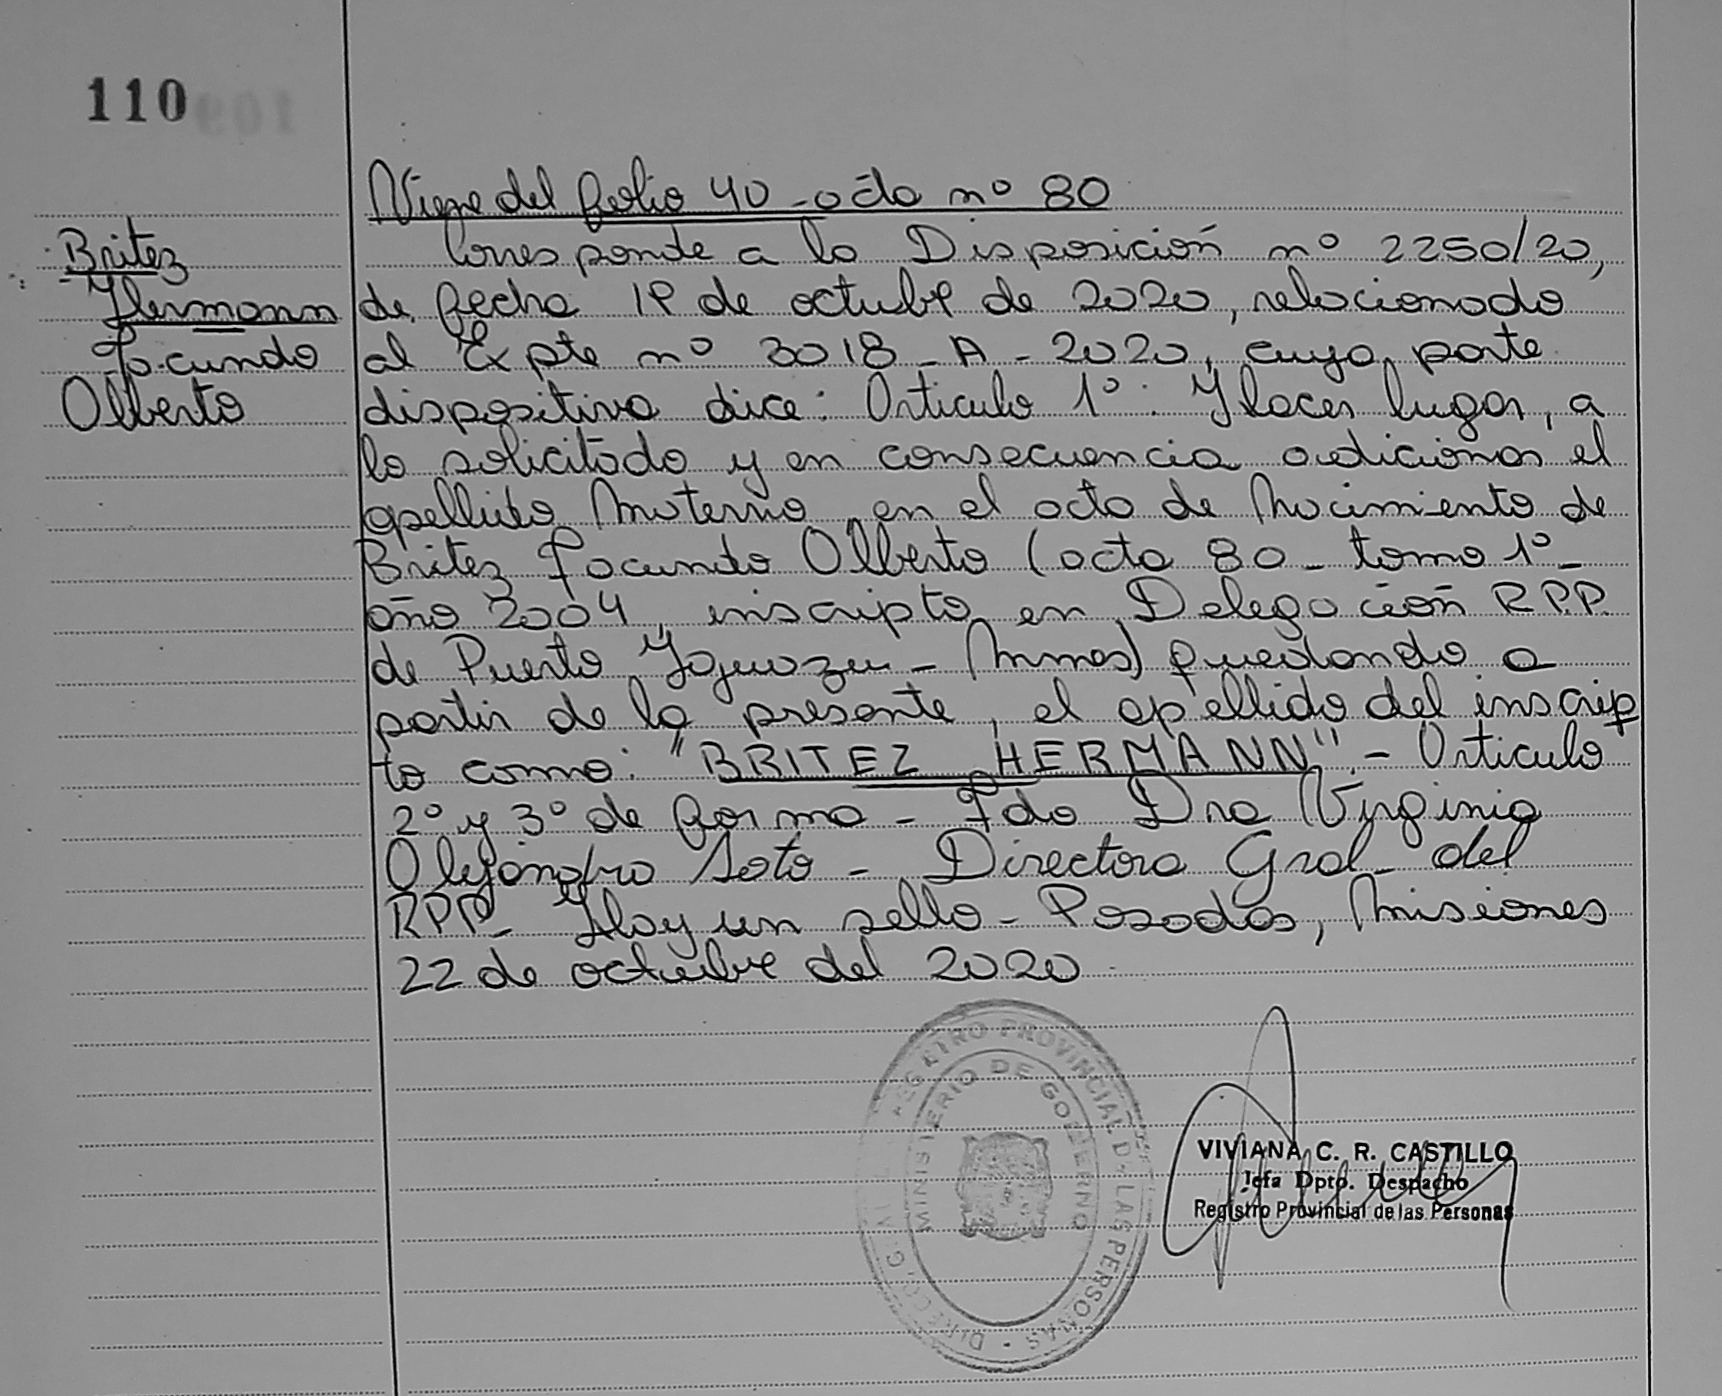 110
Viene del folio 40 - acta nº 80
Britez
Hermann
Facundo
Alberto
Corresponde a la Disposición nº 2250/20,
de fecha 19 de octubre de 2020, relacionado
al Expte nº 3018-A-2020, cuya parte
dispositiva dice: Articulo 1º: Hacer lugar, a
lo solicitado y en consecuencia adicionar el
apellido Materno, en el acta de Nacimiento de
Britez Facundo Alberto (acta 80 - tomo 1º -
año 2004, inscripto en Delegación R.P.P.
de Puerto Yguazu - Mnes) quedando a
partir de la presente, el apellido del inscrip
to como: "BRITEZ HERMANN". - Articulo
2º y 3º de forma - Fdo Dra Virginia
Alejandra Soto - Directora Gral del
RPP- Hay un sello - Posadas, Misiones
22 de octubre del 2020.
REGISTRO PROVINCIAL DE LAS PERSONAS
MINISTERIO DE GOBIERNO
VIVIANA C. R. CASTILLO
Jefa Dpto. Despacho
Registro Provincial de las Personas